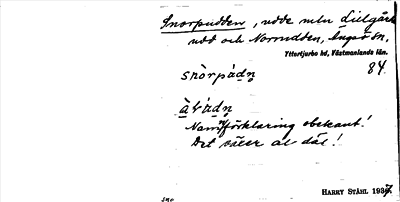 Snorpudden, udde mellan Lillgårds
udd och Norrudden, Ängsö sn,
Yttertjurbo hd, Västmanlands län.
84
snòrpúdn̥
à vúdn̥
Namnförklaring obekant!
Det säger
HARRY STÅHL 1937.
sno